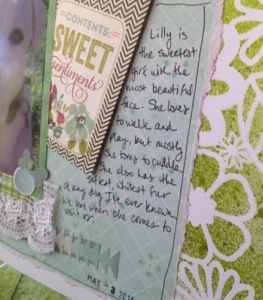 CONTENTS:
SWEET
sentiments
Lilly is
the sweetest
girl with the
most beautiful
face. She loves
to walk and
play, but mostly
she loves to cuddle.
She also has the
softest, shiniest fur
of any dog I've ever known.
We love when she comes to
visit us.
MAY - 2 201